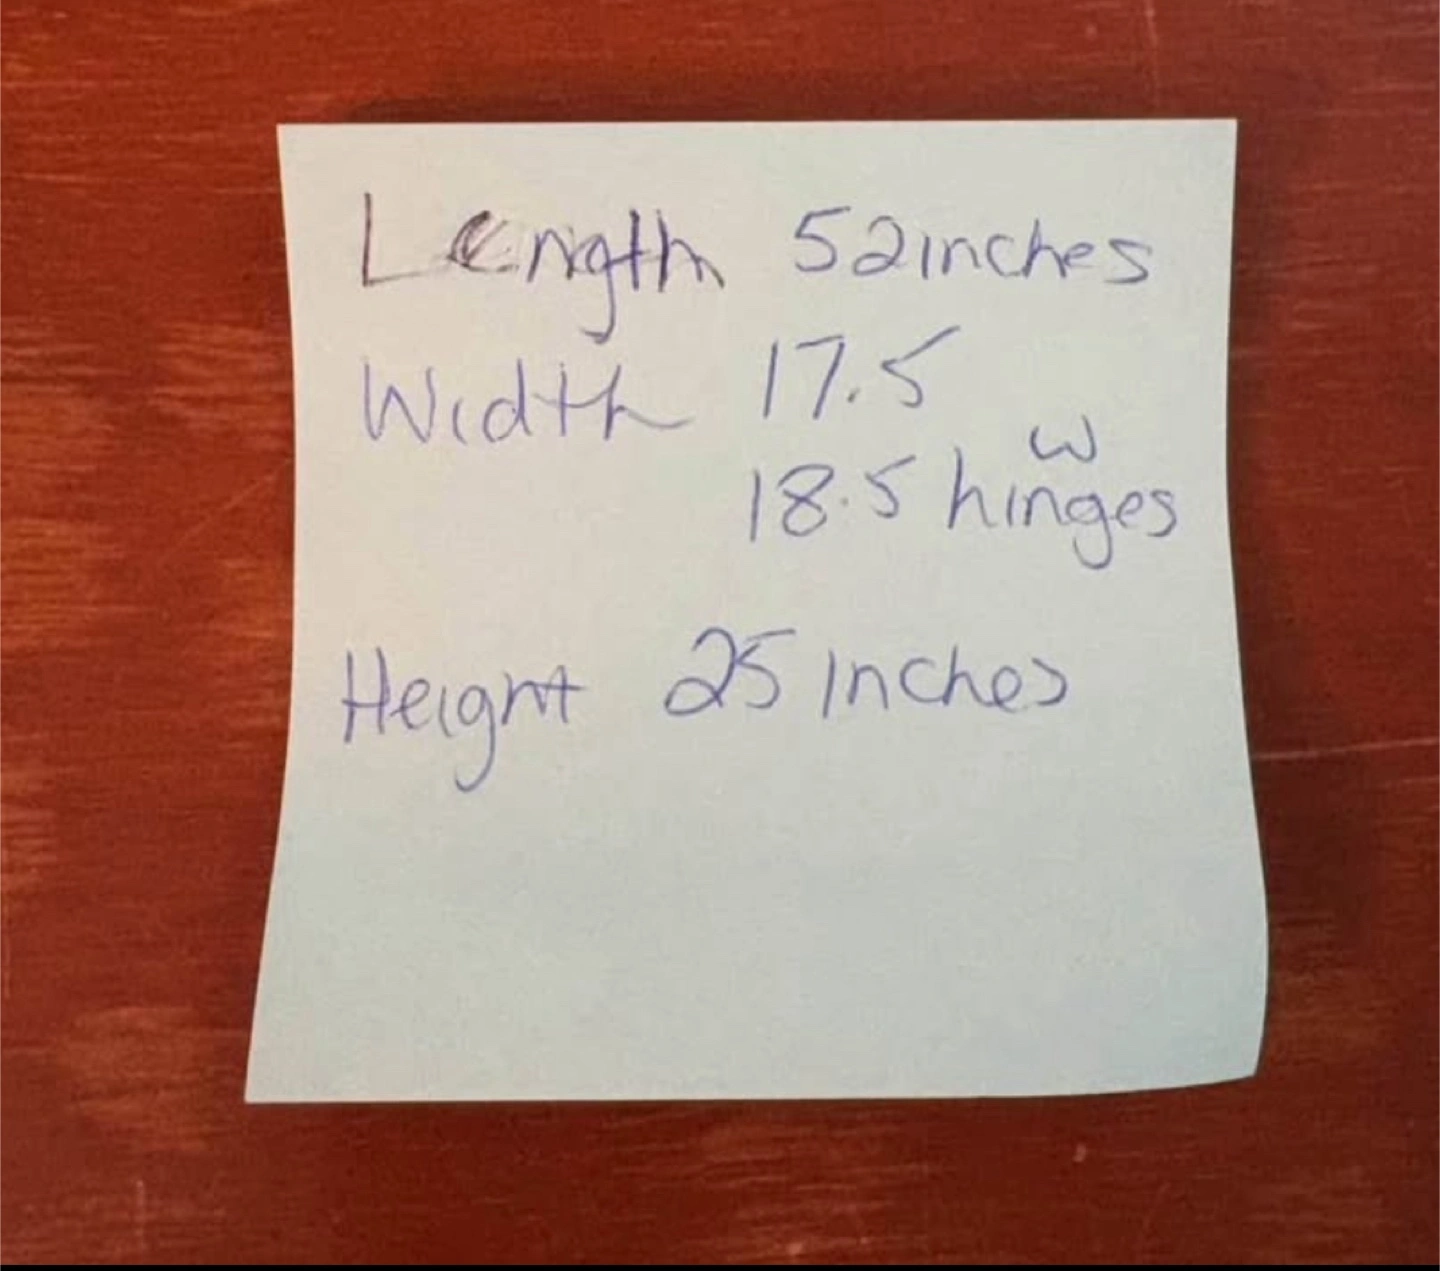 Length 52inches
Width 17.5
w
18.5 hinges
Height 25 inches